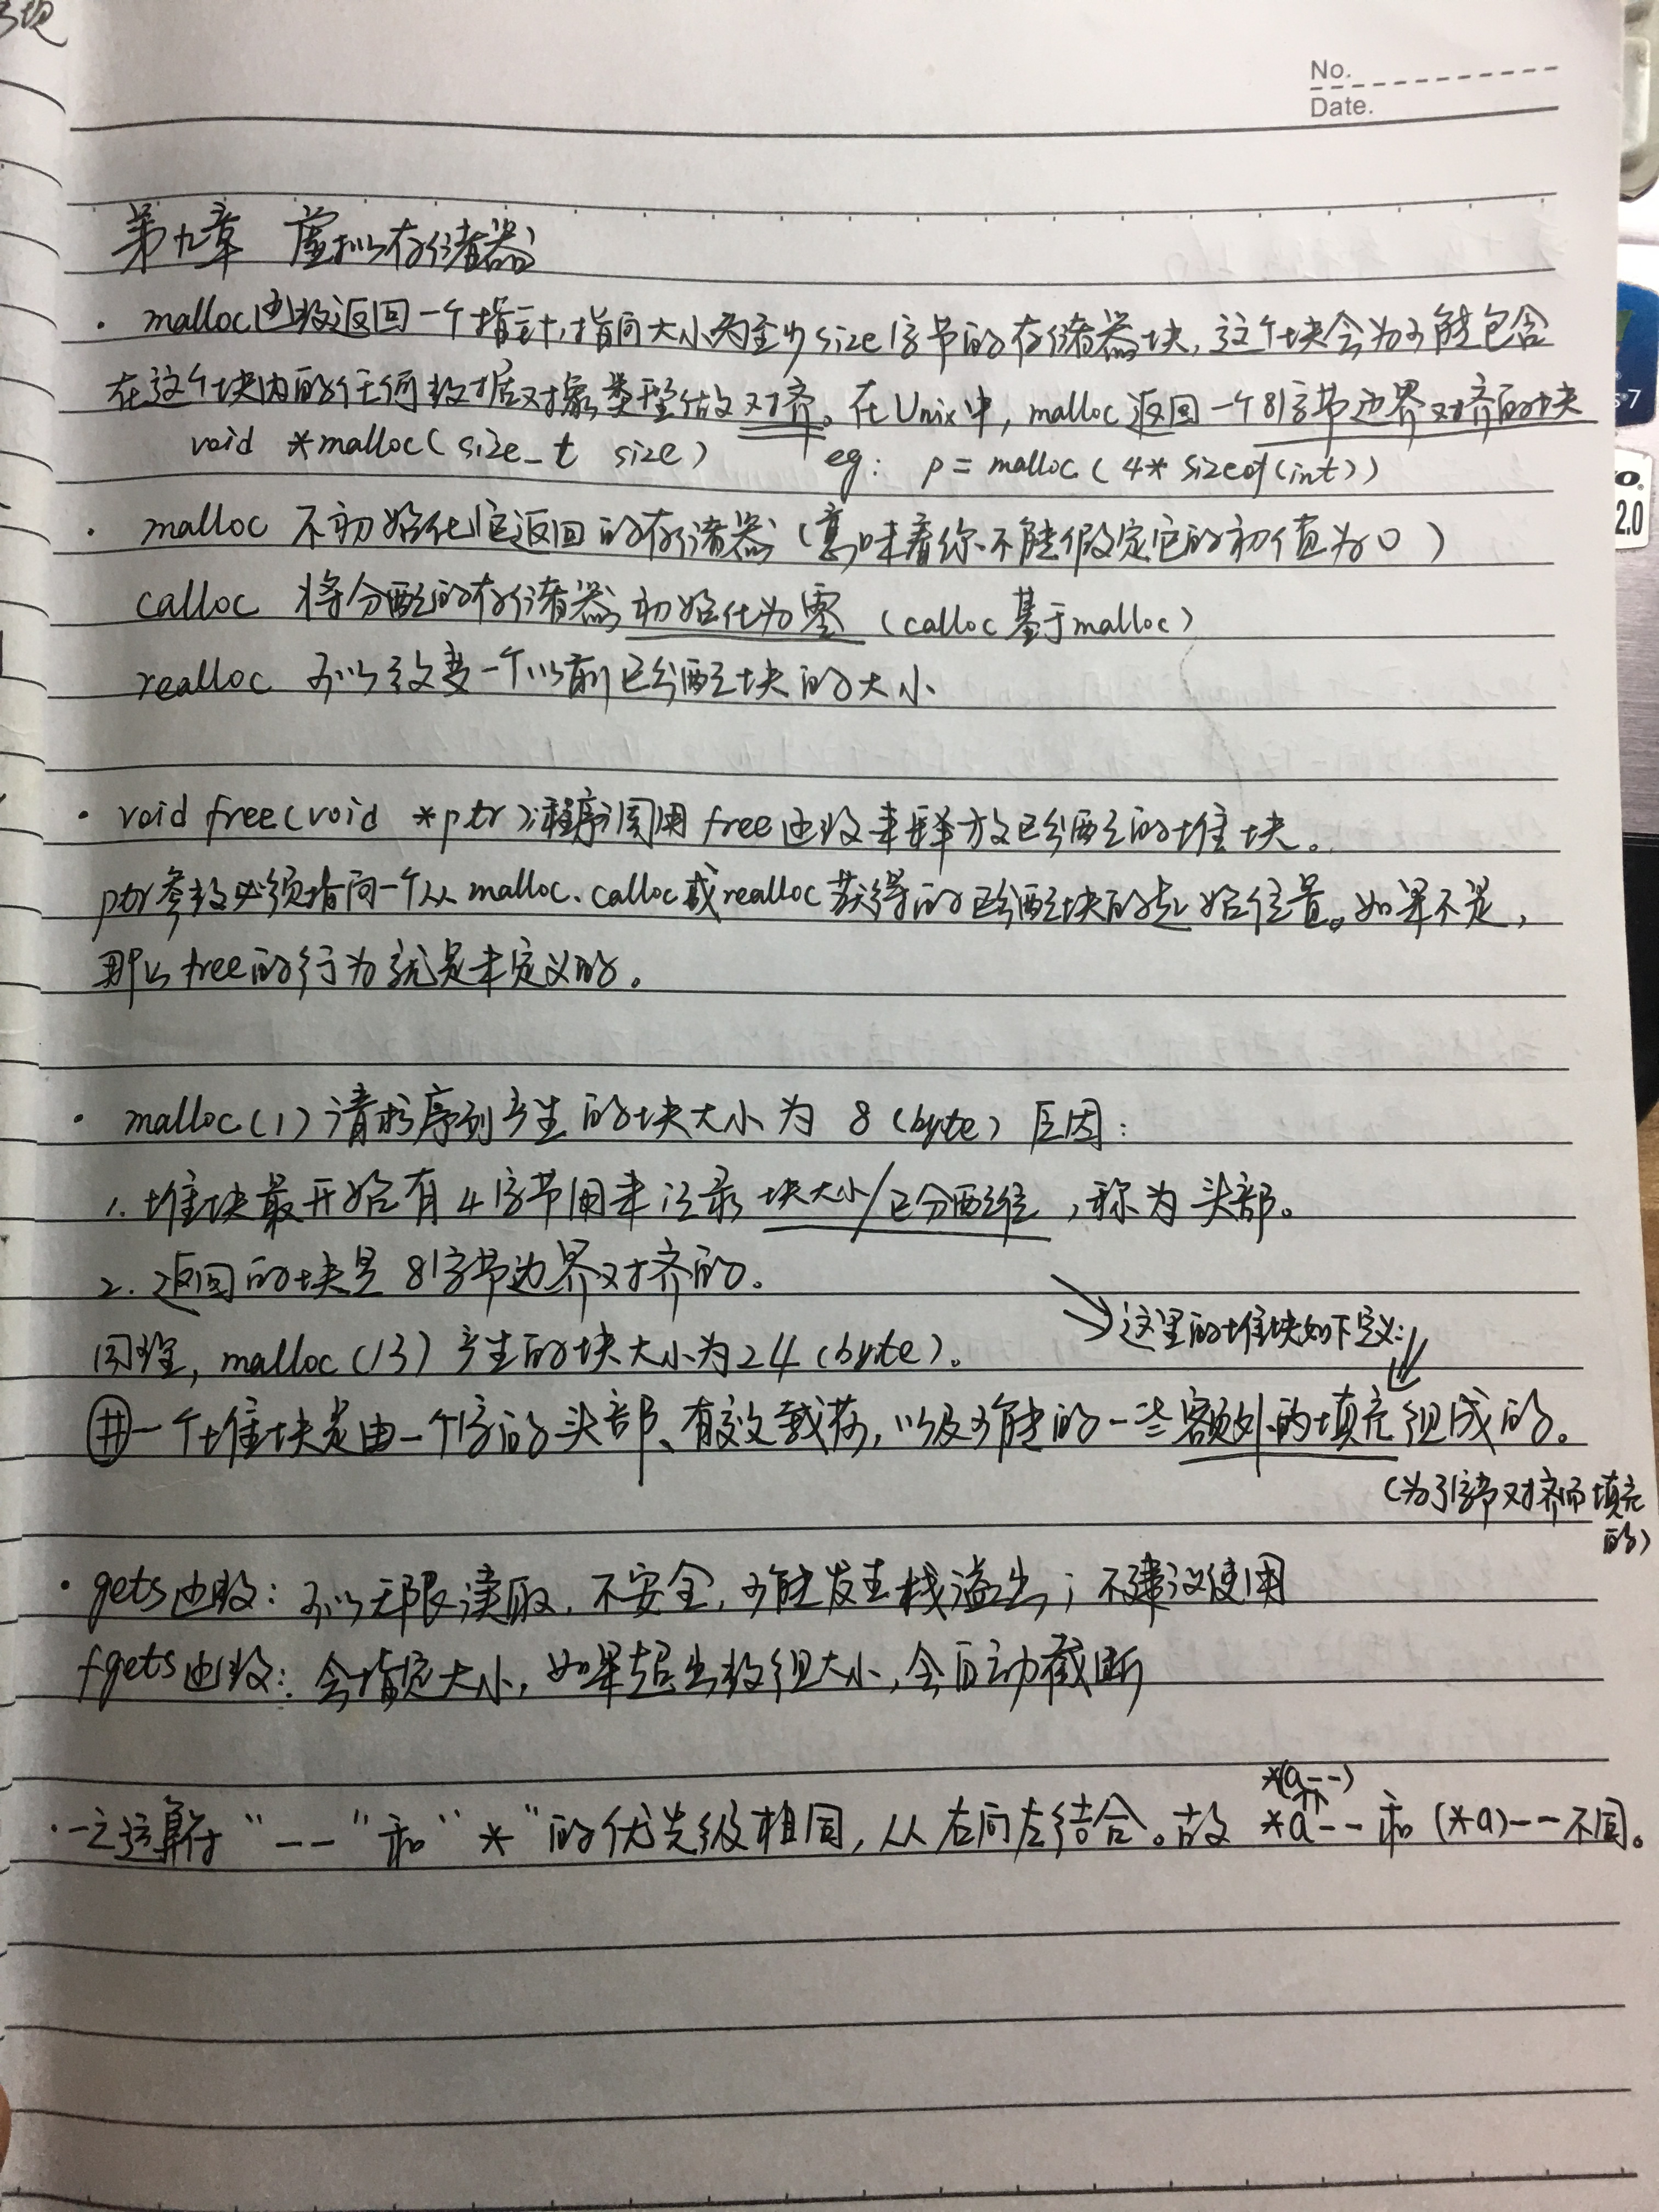 No.
Date.
第九章 虚拟存储器
· malloc函数返回一个指针,指向大小为至少size字节的存储器块,这个块会为可能包含
在这个块内的任何数据对象类型做对齐。在Unix中, malloc返回一个8字节边界对齐的块
void *malloc( size_t size) eg: p = malloc (4* sizeof(int))
· malloc 不初始化它返回的存储器 (意味着你不能假定它的初值为0)
calloc 将分配的存储器初始化为零 (calloc基于malloc)
realloc 可以改变一个以前已分配块的大小
· void free(void *ptr);程序调用 free函数来释放已分配的堆块。
ptr参数必须指向一个从malloc、calloc或realloc获得的已分配块的起始位置。如果不是,
那么free的行为就是未定义的。
· malloc(1)请求序列产生的块大小为 8(byte) 原因:
1. 堆块最开始有4字节用来记录 块大小/已分配位,称为头部。
2. 返回的块是 8字节边界对齐的。
→这里的堆块如下定义:
同理, malloc(13)产生的块大小为24(byte)。
井一个堆块是由一个字的头部、有效载荷,以及可能的一些额外的填充组成的。
(为了字节对齐而填充
的)
· gets函数: 可以无限读取,不安全,可能发生栈溢出;不建议使用
fgets函数: 会指定大小,如果超出数组大小,会自动截断
*(a--)
· 一元运算符 "--"和"*"的优先级相同,从右向左结合。故 *a-- 和 (*a)--不同。
7
2.0